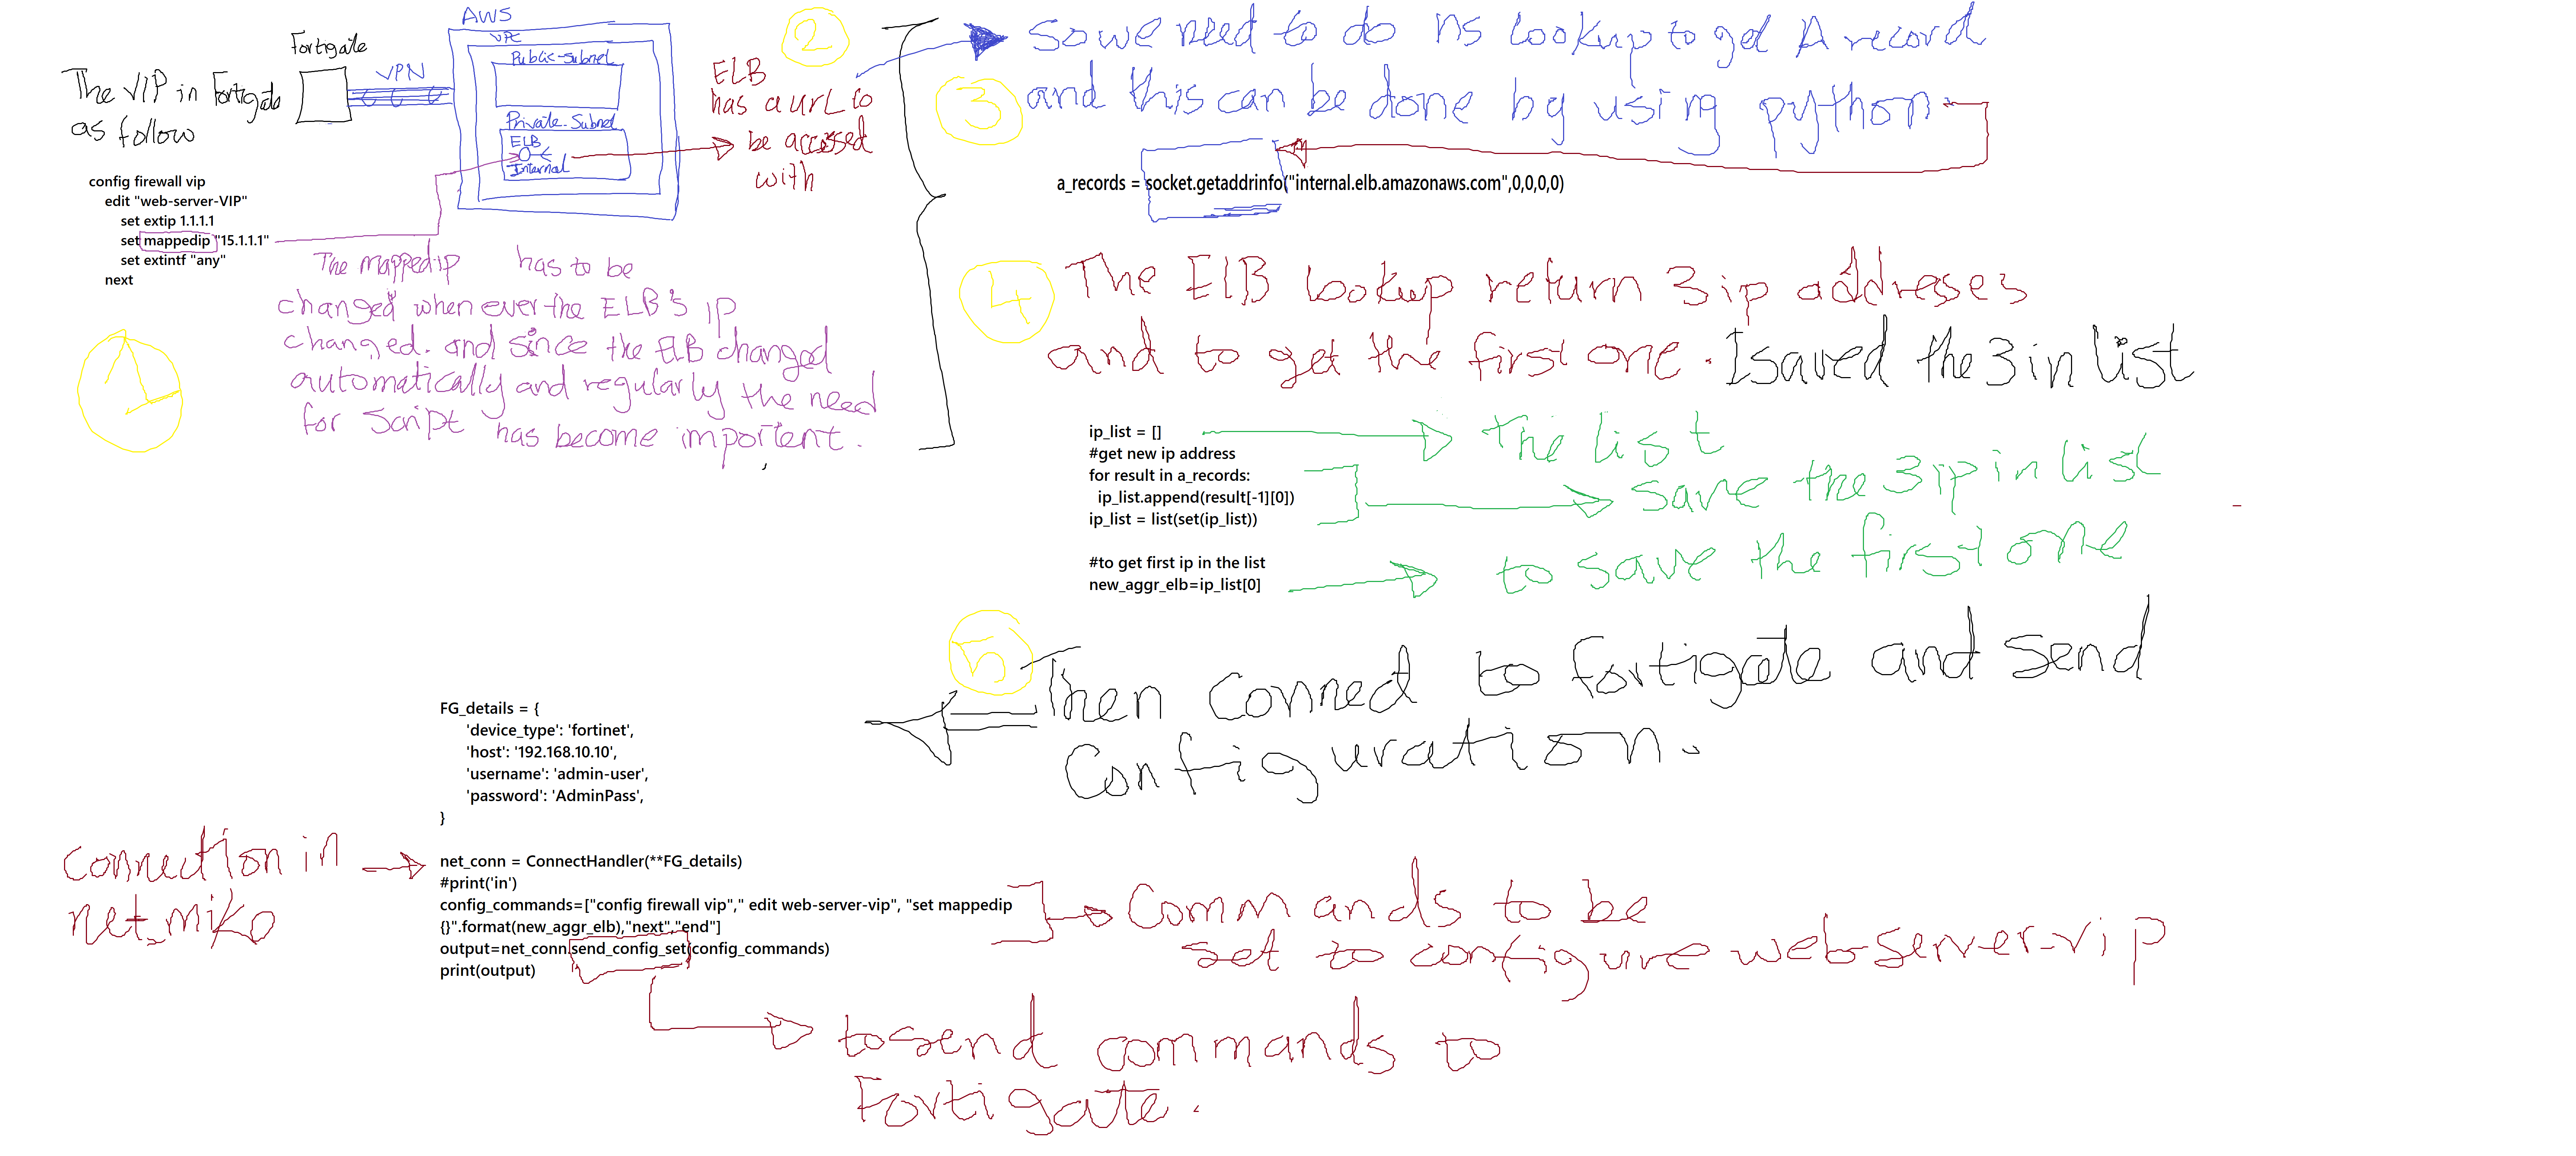 AWS
VPC
Public-Subnet
Private-Subnet
ELB
Internal
Fortigate
VPN
The VIP in Fortigate
as follow
config firewall vip
edit "web-server-VIP"
set extip 1.1.1.1
set mappedip "15.1.1.1"
set extintf "any"
next
1
The mappedip has to be
changed when ever the ELB's IP
changed. and since the ELB changed
automatically and regularly the need
for script has become importent.
2
ELB
has a url to
be accessed
with
3
so we need to do ns lookup to get A record
and this can be done by using python.
a_records = socket.getaddrinfo("internal.elb.amazonaws.com",0,0,0,0)
4
The ELB lookup return 3 ip addreses
and to get the first one. I saved the 3 in list
ip_list = []
#get new ip address
for result in a_records:
ip_list.append(result[-1][0])
ip_list = list(set(ip_list))
#to get first ip in the list
new_aggr_elb=ip_list[0]
The list
save the 3 ip in list
to save the first one
5
Then Conned to fortigate and send
Configuration.
FG_details = {
'device_type': 'fortinet',
'host': '192.168.10.10',
'username': 'admin-user',
'password': 'AdminPass',
}
connection in
netmiko
net_conn = ConnectHandler(**FG_details)
#print('in')
config_commands=["config firewall vip"," edit web-server-vip", "set mappedip
{}".format(new_aggr_elb),"next","end"]
output=net_conn.send_config_set(config_commands)
print(output)
Commands to be
set to configure web-server-vip
to send commands to
Fortigate.